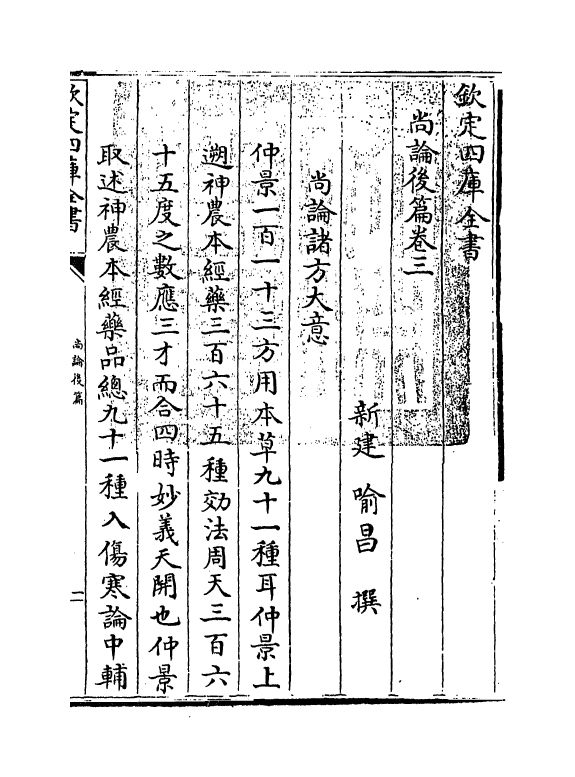 欽定四庫全書
尚論後篇卷三
新建 喻昌 撰
尚論諸方大意
仲景一百一十三方用本草九十一種耳仲景上
遡神農本經藥三百六十五種効法周天三百六
十五度之數應三才而合四時妙義天開也仲景
取述神農本經藥品總九十一種入傷寒論中輔
欽定四庫全書
尚論後篇
二